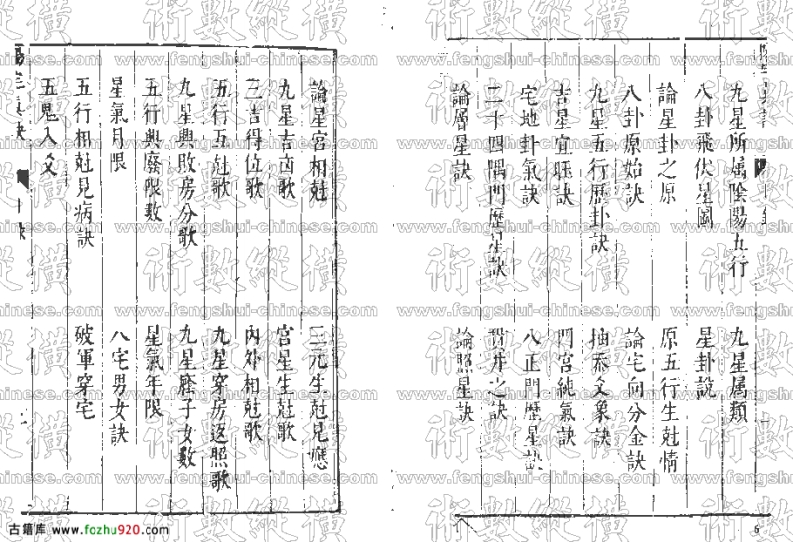 九星所属陰陽五行　九星属類
八卦飛伏星圖　星卦説
論星卦之原　原五行生尅情
八卦原始訣　論宅向分金訣
九星五行歷卦訣　抽爻象訣
吉星宜旺訣　門宮純氣訣
宅地卦氣訣　八正門歷星訣
二十四隅門歷星訣　井之訣
論層星訣　論照星訣
論星宮相尅　三元生尅見應
九星吉凶歌　宮星生尅歌
三吉得位歌　內外相尅歌
五行互尅歌　九星穿房返照歌
九星興敗房分歌　九星應子女數
五行興廢限數　星氣年限
星氣月限　八宅男女訣
五行相尅見病訣　破軍穿宅
五鬼入爻
術數縱橫
www.fengshui-chinese.com
古籍库 www.fozhu920.com
6